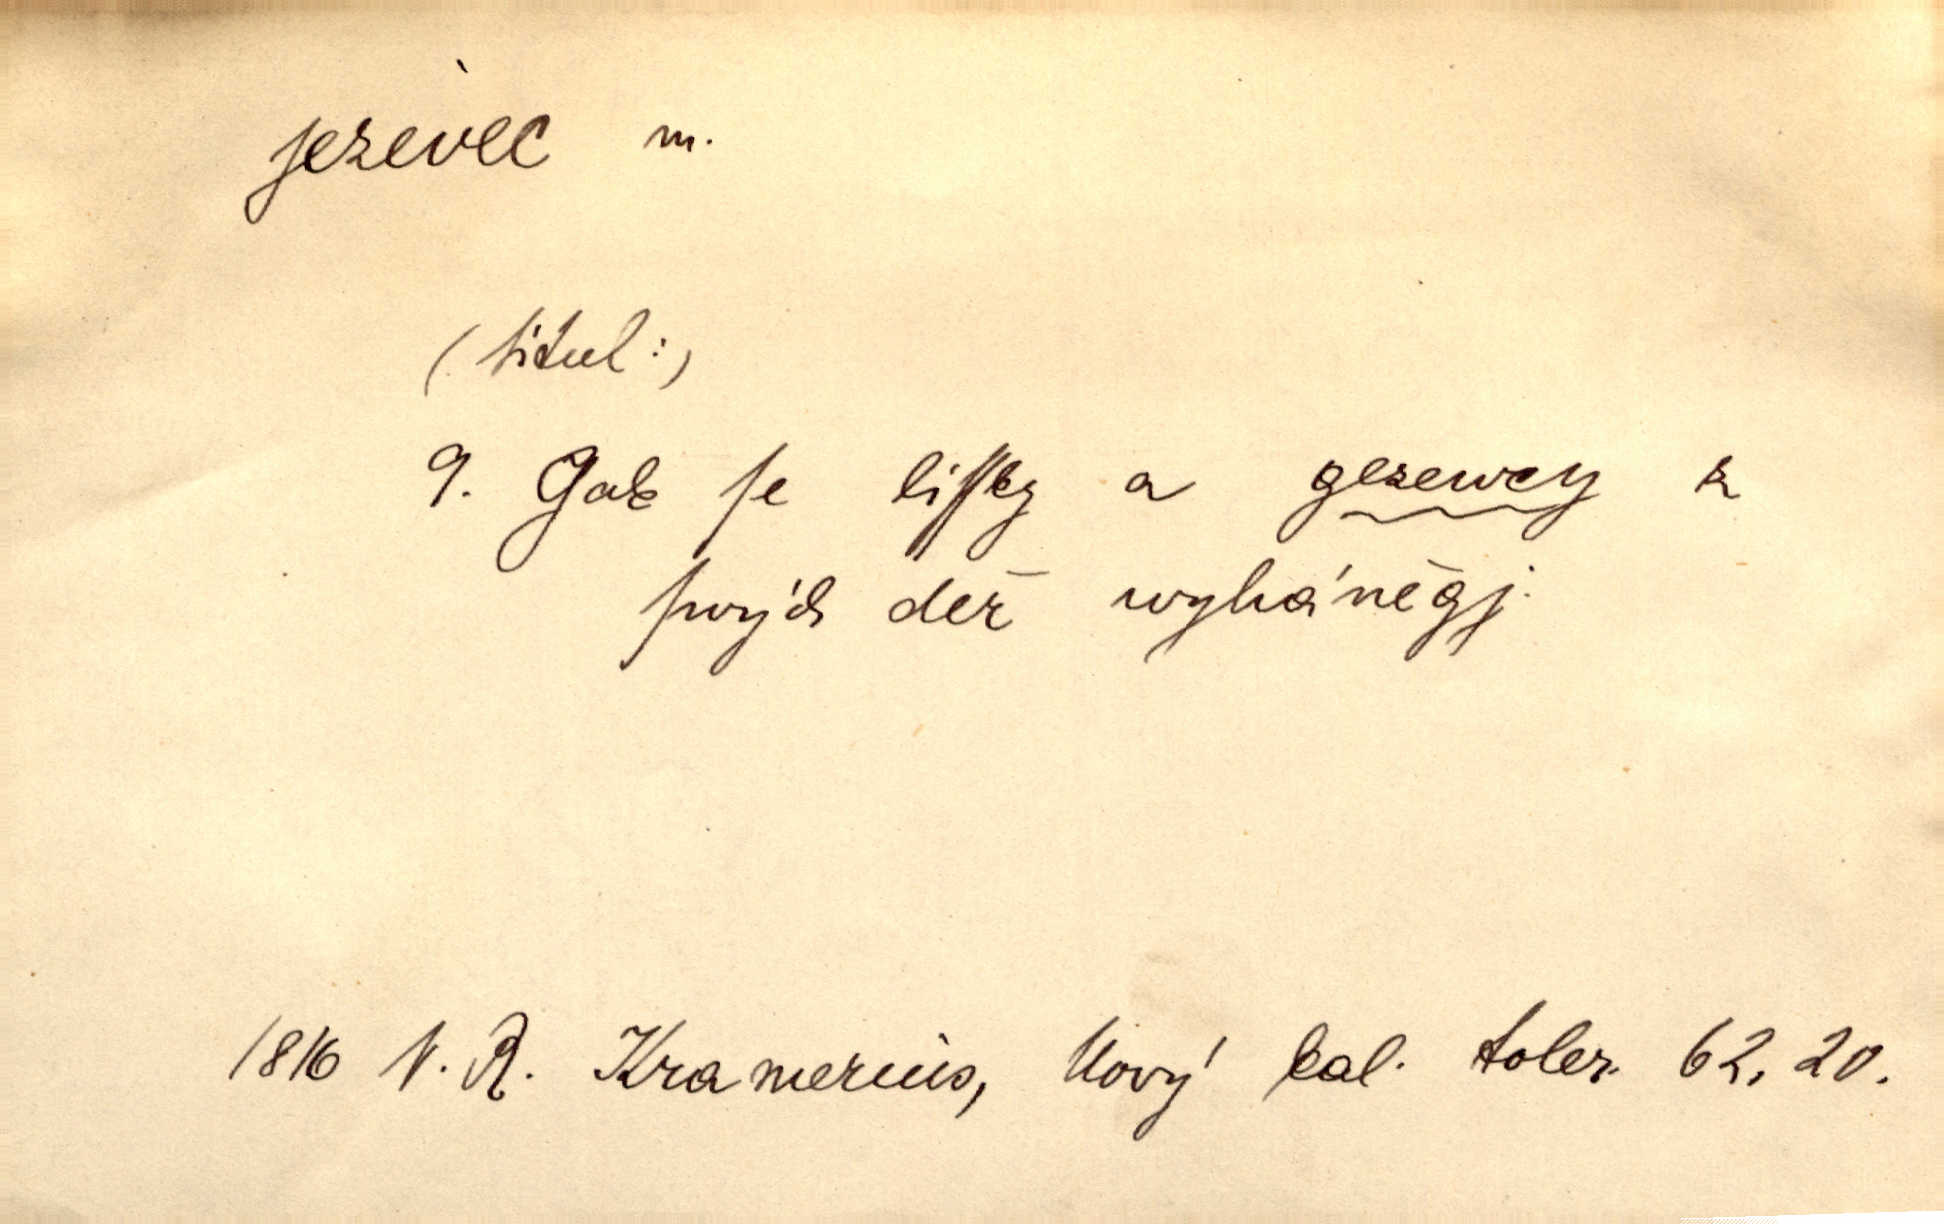 jezevec m.
(titul:)
9. Gak se lissky a gezewcy z
swých děr wyháněgj.
1816 V. R. Kramerius, Nový kal. toler. 62, 20.